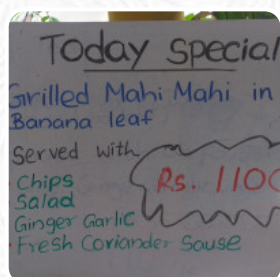 Today Special
Grilled Mahi Mahi in
Banana leaf
Served with
Chips
Rs. 1100
Salad
Ginger Garlic
Fresh Coriander Souse